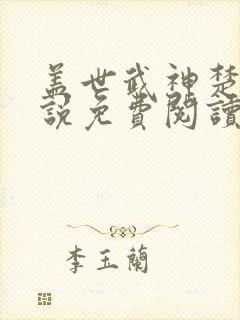 盖世武神楚
說免費閱讀
李玉蘭